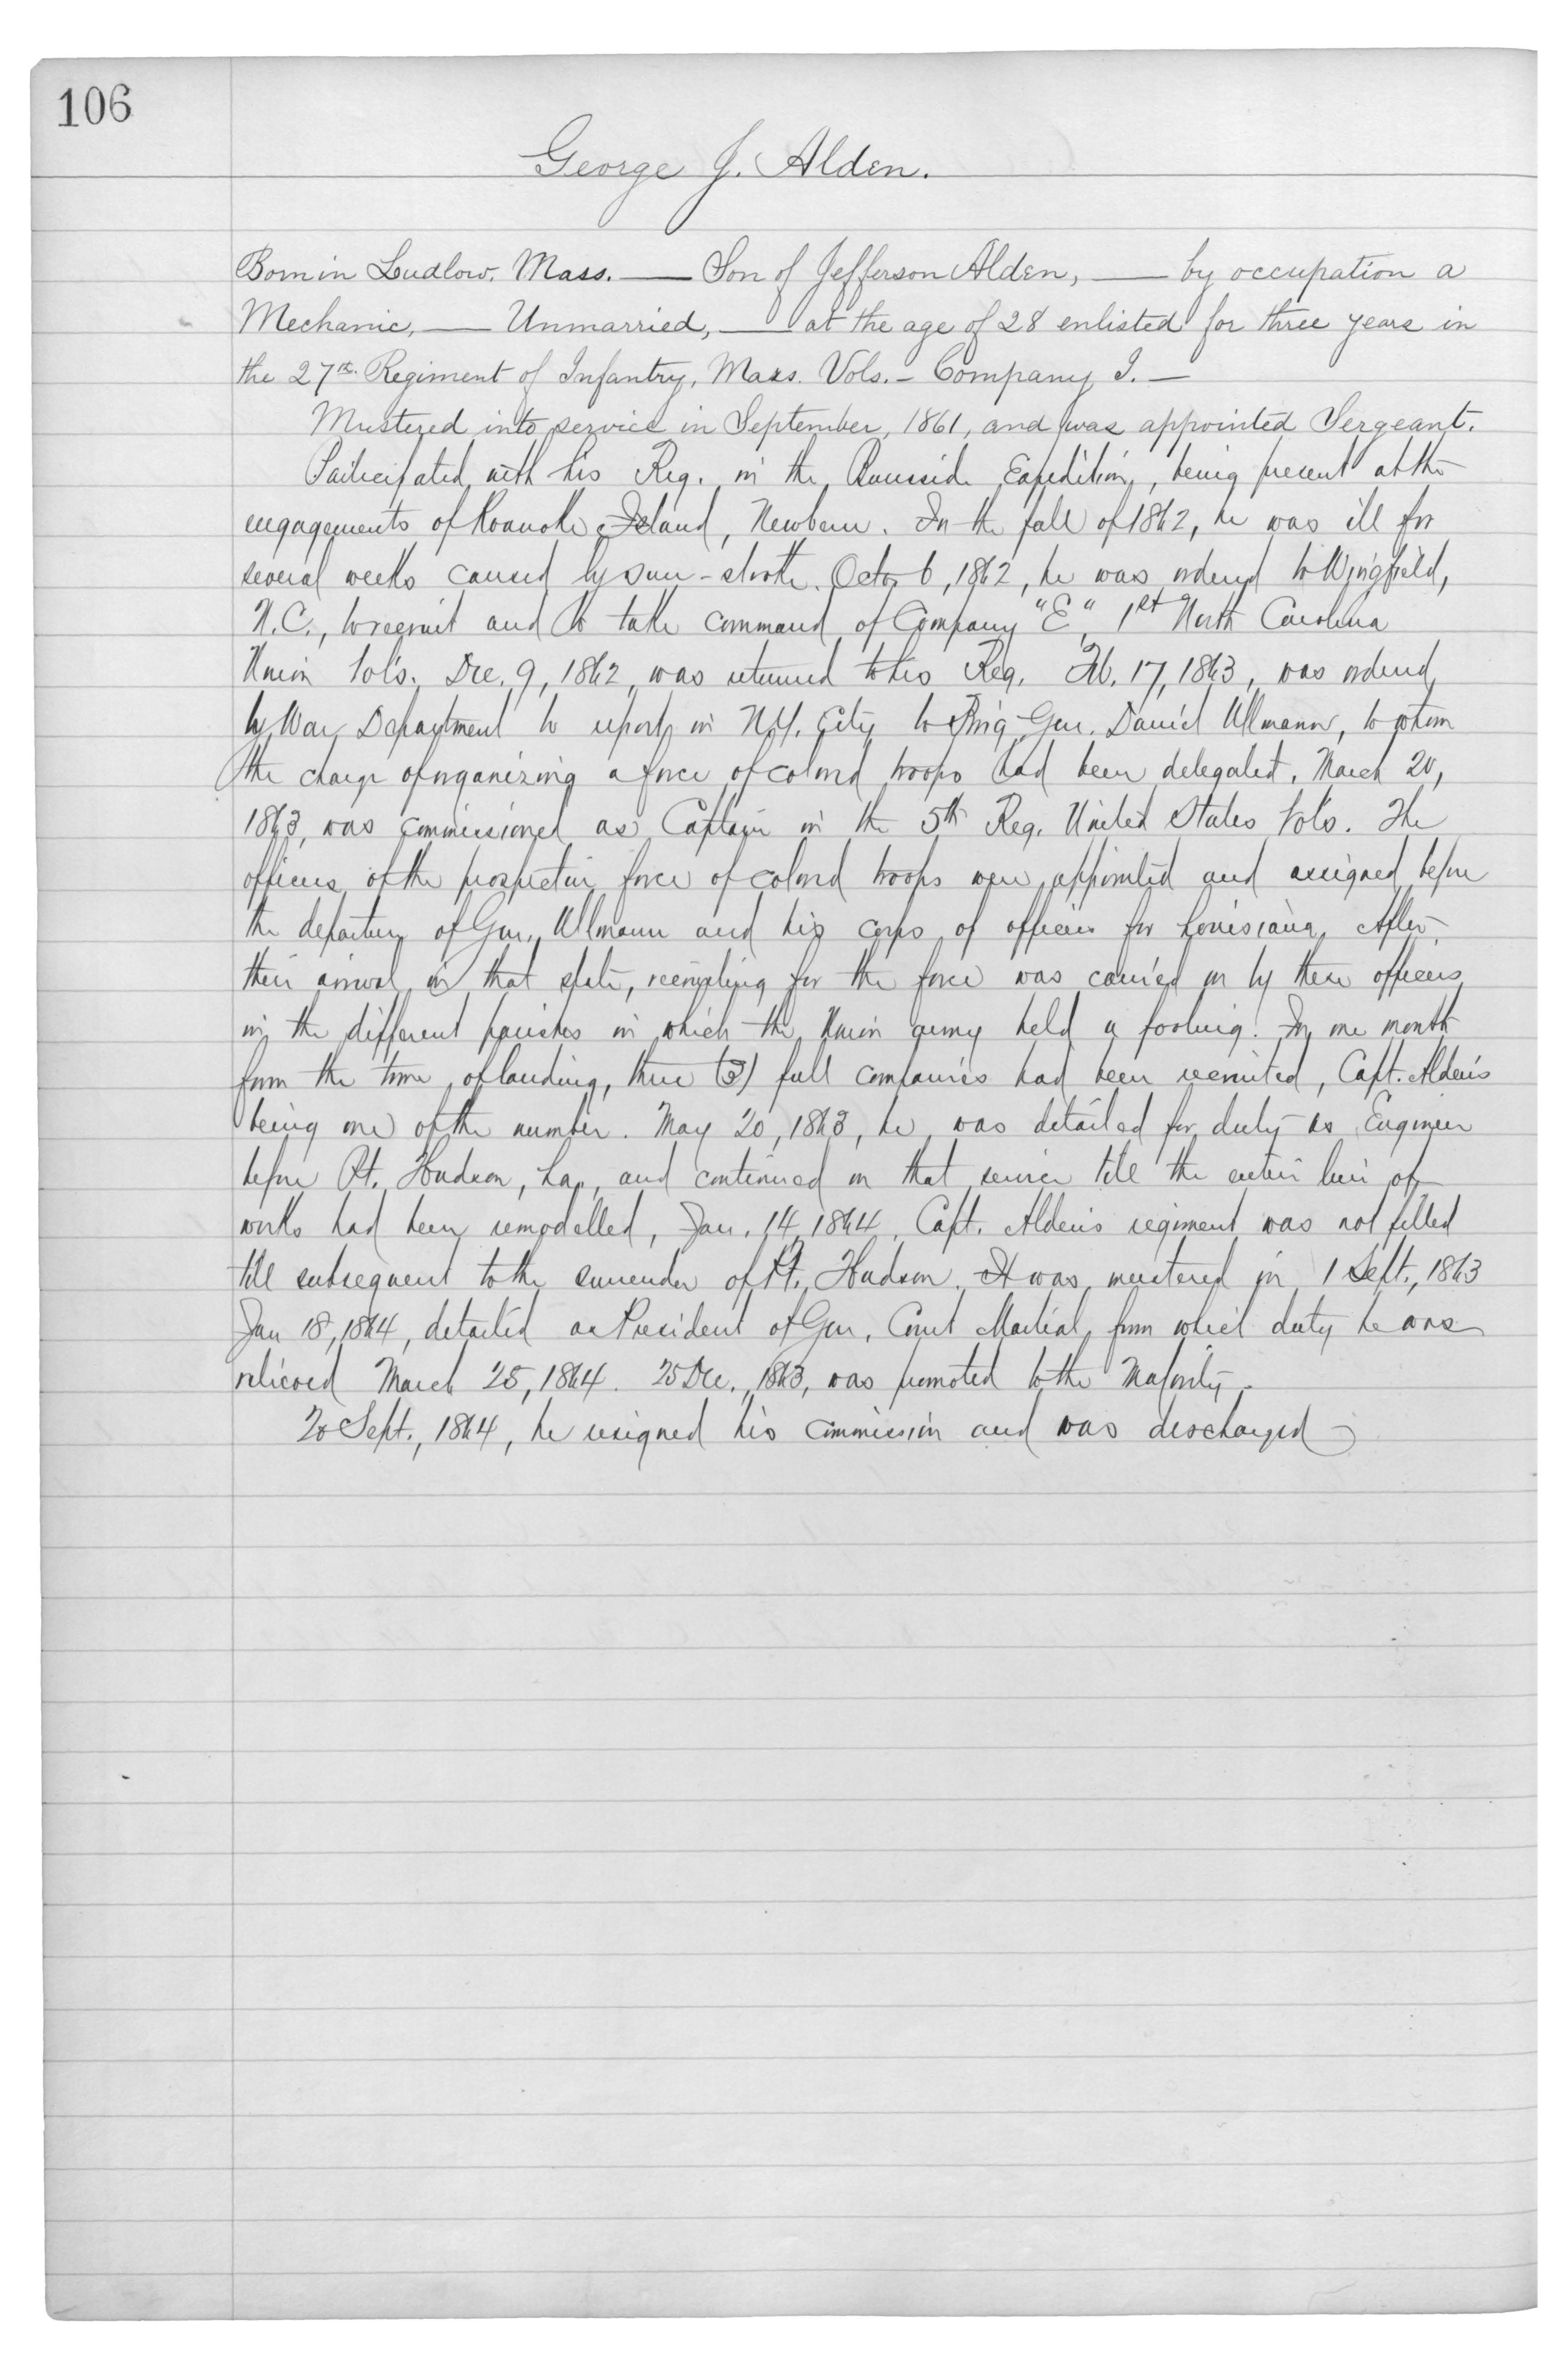 106
George J. Alden.
Born in Ludlow, Mass. — Son of Jefferson Alden, — by occupation a
Mechanic, — Unmarried, — at the age of 28 enlisted for three years in
the 27th Regiment of Infantry, Mass. Vols. - Company I. —
Mustered into service in September, 1861, and was appointed Sergeant.
Participated with his Reg. in the Burnside Expedition, being present at the
engagements of Roanoke Island, Newbern. In the fall of 1862, he was ill for
several weeks caused by sun-stroke. Octo. 6, 1862, he was ordered to Wingfield,
N.C., to recruit and to take command of Company "E", 1st North Carolina
Union Vols. Dec. 9, 1862, was returned to his Reg. Feb. 17, 1863, was ordered
by War Department to report in N.Y. City to Brig. Gen. Daniel Ullmann, to whom
the charge of organizing a force of colored troops had been delegated. March 20,
1863, was commissioned as Captain in the 5th Reg. United States Vols. The
officers of the prospective force of colored troops were appointed and assigned before
the departure of Gen. Ullmann and his corps of officers for Louisiana. After
their arrival in that state, recruiting for the force was carried on by these officers
in the different parishes in which the Union army held a footing. In one month
from the time of landing, three (3) full companies had been recruited, Capt. Alden's
being one of the number. May 20, 1863, he was detailed for duty as Engineer
before Pt. Hudson, La., and continued on that service till the entire line of
works had been remodelled, Jan. 14, 1864. Capt. Alden's regiment was not filled
till subsequent to the surrender of Pt. Hudson. It was mustered in 1 Sept., 1863
Jan 18, 1864, detailed as President of Gen. Court Martial, from which duty he was
relieved March 25, 1864. 25 Dec., 1863, was promoted to the Majority.
20 Sept., 1864, he resigned his commission and was discharged